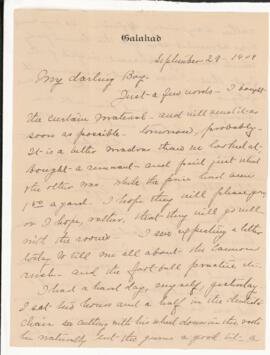 Galahad
September 29 - 1908
My darling Boy -
Just a few words - I bought
the curtain material - and will send it as
soon as possible - tomorrow, probably -
It is a better madras than we looked at.
Bought a remnant - and paid just what
the other was - while the price had been
a yard. I hope they will please you
or I hope, rather, that they will go well
with the room. I am expecting a letter
today to tell me all about the
rush - and the foot-ball practice etc -
I had a hard day, myself, yesterday
I sat two hours and a half in the dentist's
chair
he naturally cut the gums a good bit - a